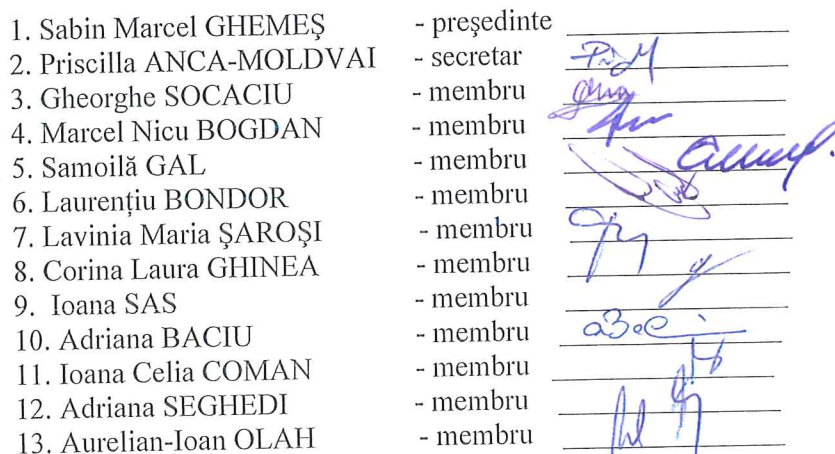 1. Sabin Marcel GHEMEŞ - preşedinte
2. Priscilla ANCA-MOLDVAI - secretar
3. Gheorghe SOCACIU - membru
4. Marcel Nicu BOGDAN - membru
5. Samoilă GAL - membru
6. Laurențiu BONDOR - membru
7. Lavinia Maria ŞAROŞI - membru
8. Corina Laura GHINEA - membru
9. Ioana SAS - membru
10. Adriana BACIU - membru
11. Ioana Celia COMAN - membru
12. Adriana SEGHEDI - membru
13. Aurelian-Ioan OLAH - membru